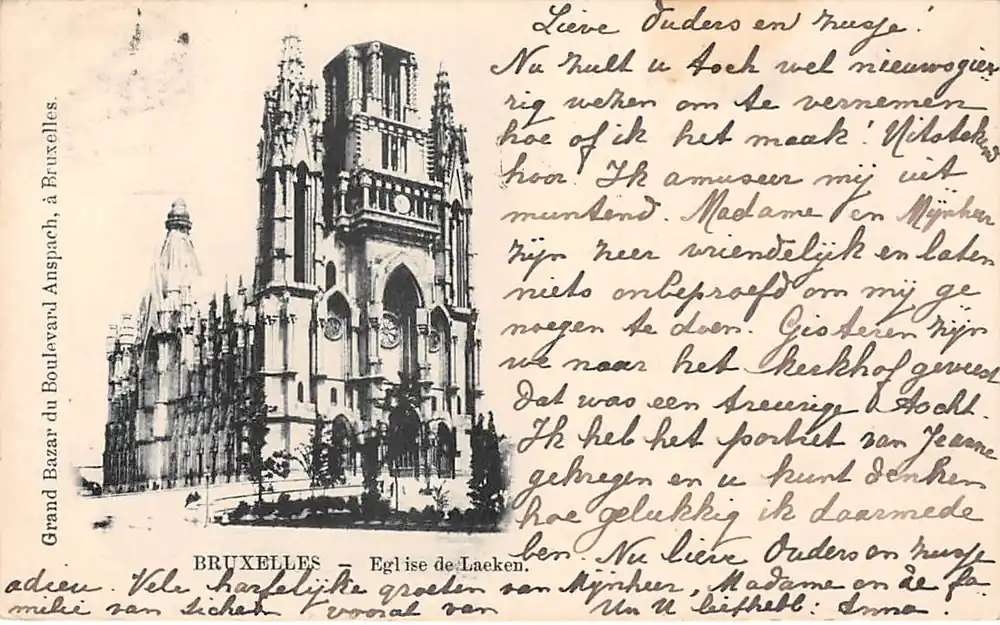 Grand Bazar du Boulevard Anspach, à Bruxelles.
Lieve Ouders en zusje!
Nu zult u toch wel nieuwsgier
rig wezen om te vernemen
hoe of ik het maak! Uitstekend
hoor! Ik amuseer mij uit
muntend. Madame en Mijnheer
zijn zeer vriendelijk en laten
niets onbeproefd om mij ge
noegen te doen. Gisteren zijn
we naar het kerkhof geweest
dat was een treurige tocht.
Ik heb het portret van Jeanne
gekregen en u kunt denken
hoe gelukkig ik daarmede
ben. Nu lieve Ouders en zusje
BRUXELLES – Eglise de Laeken.
adieu. Vele hartelijke groeten van Mijnheer, Madame en de fa
milie van vooral van Uw U liefhebb: Anna.